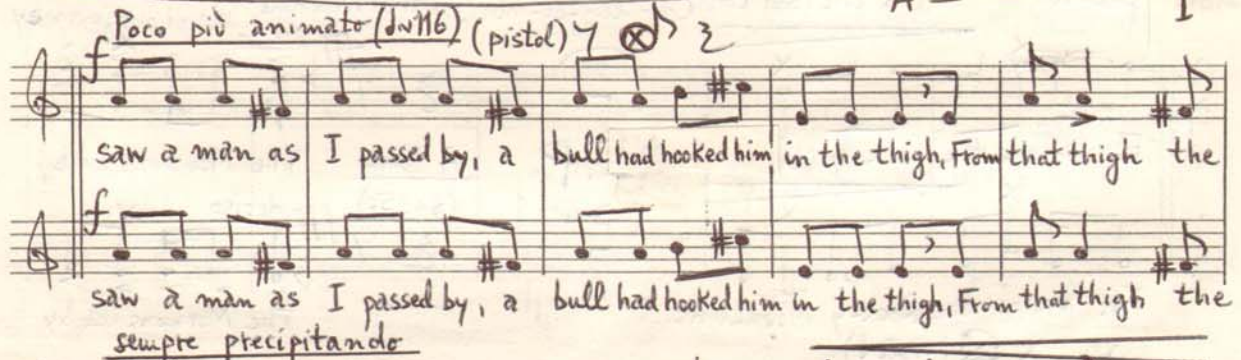 I
Poco più animato (♩~116) (pistol)
f
saw a man as I passed by, a bull had hooked him in the thigh, From that thigh the
f
saw a man as I passed by, a bull had hooked him in the thigh, From that thigh the
sempre precipitando